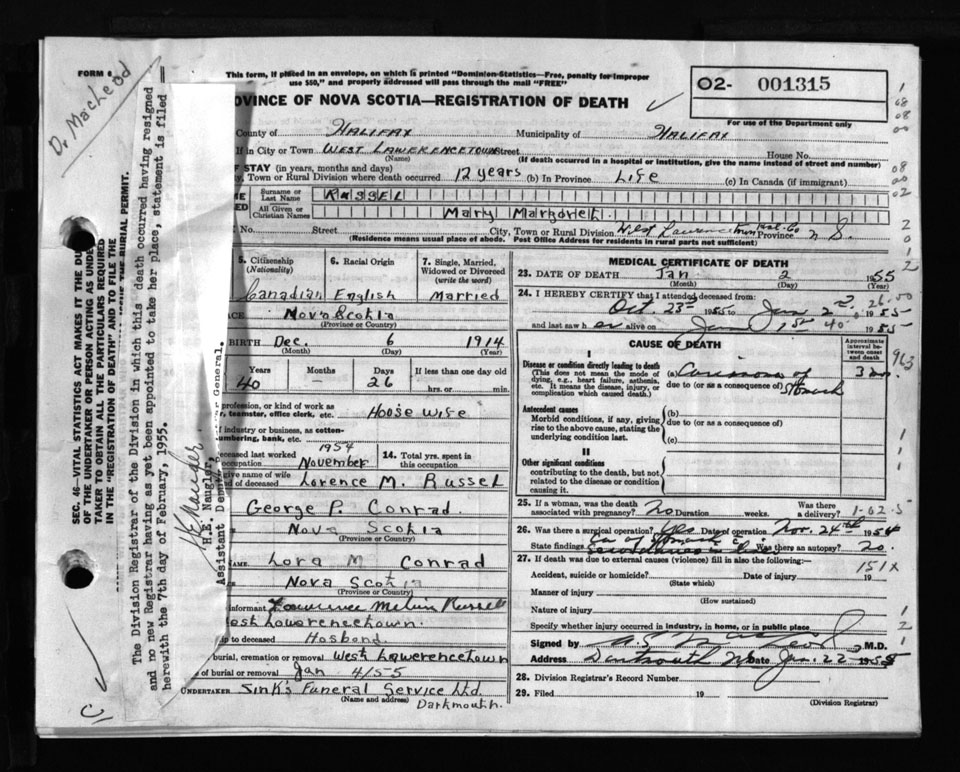 FORM 6
Dr MacLeod
This form, if placed in an envelope, on which is printed "Dominion-Statistics—Free, penalty for improper
use $50," and properly addressed will pass through the mail "FREE"
OVINCE OF NOVA SCOTIA—REGISTRATION OF DEATH
O2- 001315
For use of the Department only
SEC. 46—VITAL STATISTICS ACT MAKES IT THE DU
OF THE UNDERTAKER OR PERSON ACTING AS UNDE
TAKER TO OBTAIN ALL THE PARTICULARS REQUIRED
IN THE "REGISTRATION OF DEATH" AND TO FILE THE
THE BURIAL PERMIT.
The Division Registrar of the Division in which this death occurred having resigned
and no new Registrar having as yet been appointed to take her place, statement is filed
herewith the 7th day of February, 1955.
H.E. Naugler,
Assistant De
r General.
County of HALIFAX Municipality of HALIFAX
If in City or Town WEST LAWERENCETOWN Street House No.
(Name) (If death occurred in a hospital or institution, give the name instead of street and number)
F STAY (in years, months and days)
, Town or Rural Division where death occurred 12 years (b) In Province Life (c) In Canada (if immigrant)
Surname or
Last Name RUSSEL
All Given or
Christian Names Mary Margret
No. Street City, Town or Rural Division West Lawrencetown Hal. Co Province N S
(Residence means usual place of abode. Post Office Address for residents in rural parts not sufficient)
5. Citizenship
(Nationality)
6. Racial Origin
7. Single, Married,
Widowed or Divorced
(write the word)
Canadian English Married
ACE Nova Scotia
(Province or Country)
BIRTH Dec. 6 1914
(Month) (Day) (Year)
Years Months Days If less than one day old
40 — 26 hrs. or min.
profession, or kind of work as
r, teamster, office clerk, etc. House wife
f industry or business, as cotton-
umbering, bank, etc.
deceased last worked 1954
occupation November
14. Total yrs. spent in
this occupation
give name of wife
nd of deceased Lorence M. Russel
George P. Conrad
Nova Scotia
(Province or Country)
NAME Lora M Conrad
Nova Scotia
(Province or Country)
informant Lawrence Melvin Russell
West Lowerencetown.
ip to deceased Hosbend.
burial, cremation or removal West Lawerencetown
of burial or removal Jan 4/55
UNDERTAKER Sink's Funeral Service Ltd.
(Name and address) Darkmouth.
MEDICAL CERTIFICATE OF DEATH
23. DATE OF DEATH Jan 2 1955
(Month) (Day) (Year)
24. I HEREBY CERTIFY that I attended deceased from:
Oct. 23rd 1955 to Jan 2nd 1955
and last saw her alive on Jan 1st 1955
CAUSE OF DEATH
Approximate
interval be-
tween onset
and death
I
Disease or condition directly leading to death
(This does not mean the mode of
dying, e.g., heart failure, asthenia,
etc. It means the disease, injury, or
complication which caused death.)
(a) Carcinoma of
due to (or as a consequence of) Stomach
Antecedent causes
Morbid conditions, if any, giving
rise to the above cause, stating the
underlying condition last.
(b)
due to (or as a consequence of)
(c)
II
Other significant conditions
contributing to the death, but not
related to the disease or condition
causing it.
25. If a woman, was the death
associated with pregnancy? No Duration weeks. Was there
a delivery?
26. Was there a surgical operation? Yes Date of operation Nov. 24th 1954
State findings Ca of Stomach
Was there an autopsy? no.
27. If death was due to external causes (violence) fill in also the following:—
Accident, suicide or homicide? Date of injury 19
(State which)
151X
Manner of injury
(How sustained)
Nature of injury
Specify whether injury occurred in industry, in home, or in public place
Signed by M.D.
Address Dartmouth NS Date Jan. 22 1955
28. Division Registrar's Record Number
29. Filed 19
(Division Registrar)